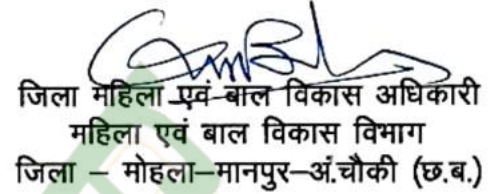 जिला महिला एवं बाल विकास अधिकारी
महिला एवं बाल विकास विभाग
जिला – मोहला–मानपुर–अं.चौकी (छ.ब.)